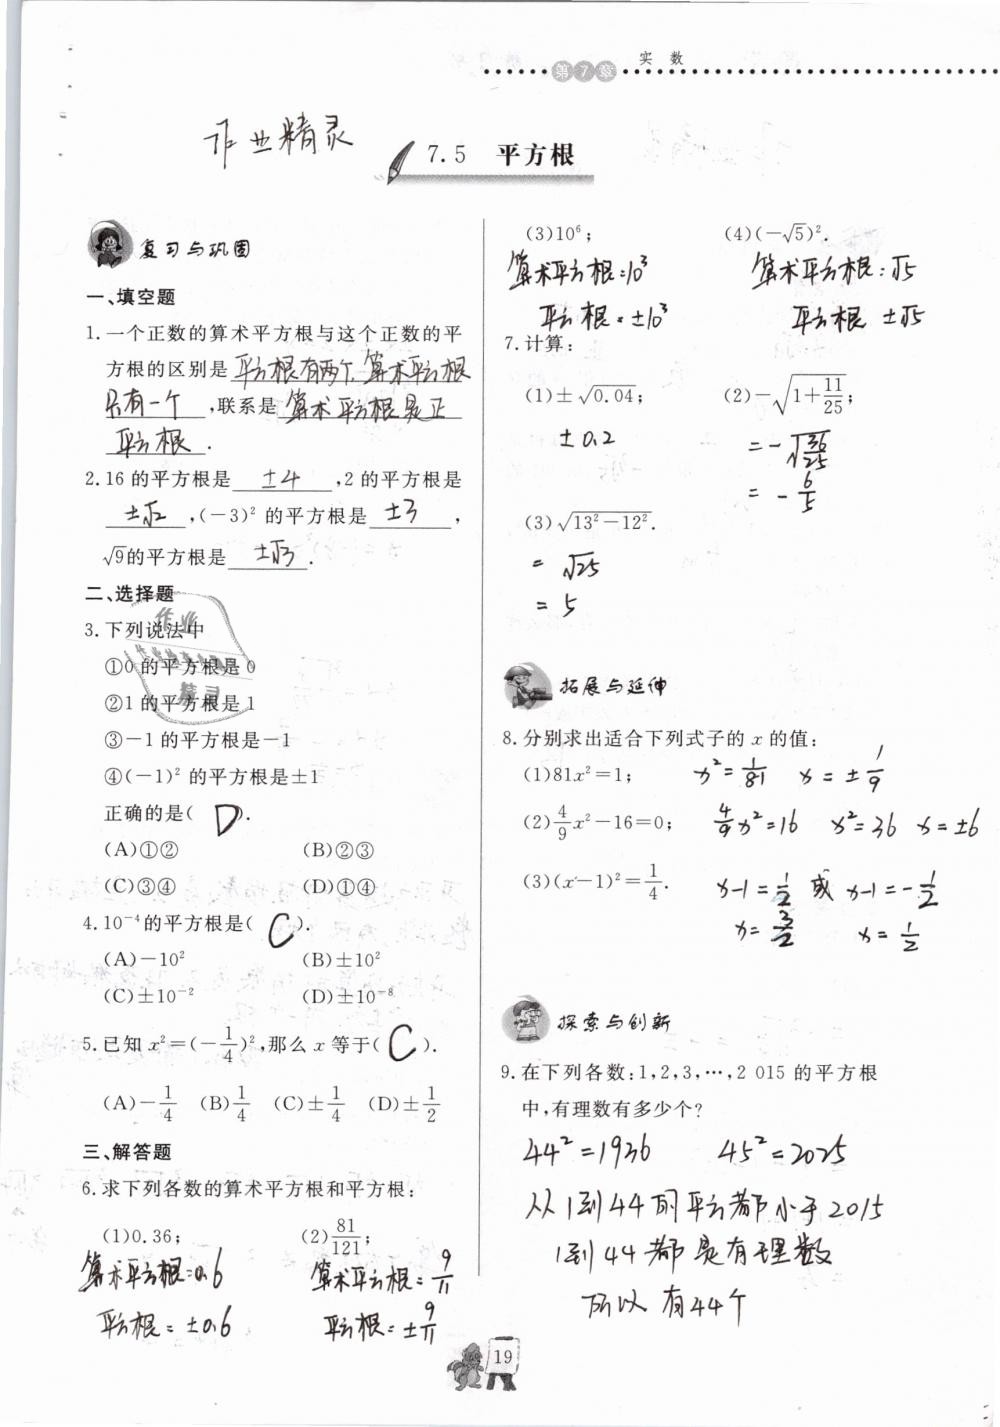 实 数
第7章
作业精灵
7.5 平方根
复习与巩固
一、填空题
1.一个正数的算术平方根与这个正数的平
方根的区别是 平方根有两个,算术平方根
只有一个 ,联系是 算术平方根是正
平方根 .
2.16 的平方根是 ±4 ,2 的平方根是
±√2 ,(-3)² 的平方根是 ±3 ,
√9的平方根是 ±√3 .
二、选择题
3.下列说法中
①0 的平方根是 0
②1 的平方根是 1
③-1 的平方根是-1
④(-1)² 的平方根是±1
正确的是( D ).
(A)①② (B)②③
(C)③④ (D)①④
4.10⁻⁴的平方根是( C ).
(A)-10² (B)±10²
(C)±10⁻² (D)±10⁻⁸
5.已知 x²=(-1/4)²,那么 x 等于( C ).
(A)-1/4 (B)1/4 (C)±1/4 (D)±1/2
三、解答题
6.求下列各数的算术平方根和平方根:
(1)0.36; (2)81/121;
算术平方根=0.6 算术平方根=9/11
平方根=±0.6 平方根=±9/11
(3)10⁶; (4)(-√5)².
算术平方根:10³ 算术平方根:√5
平方根=±10³ 平方根 ±√5
7.计算:
(1)±√0.04; (2)-√(1+11/25);
±0.2 =-√(36/25)
=-6/5
(3)√(13²-12²).
=√25
=5
拓展与延伸
8.分别求出适合下列式子的 x 的值:
(1)81x²=1; x²=1/81 x=±1/9
(2)4/9x²-16=0; 4/9x²=16 x²=36 x=±6
(3)(x-1)²=1/4. x-1=1/2 或 x-1=-1/2
x=3/2 x=1/2
探索与创新
9.在下列各数:1,2,3,…,2 015 的平方根
中,有理数有多少个?
44²=1936 45²=2025
从1到44的平方都小于2015
1到44都是有理数
所以 有44个
19